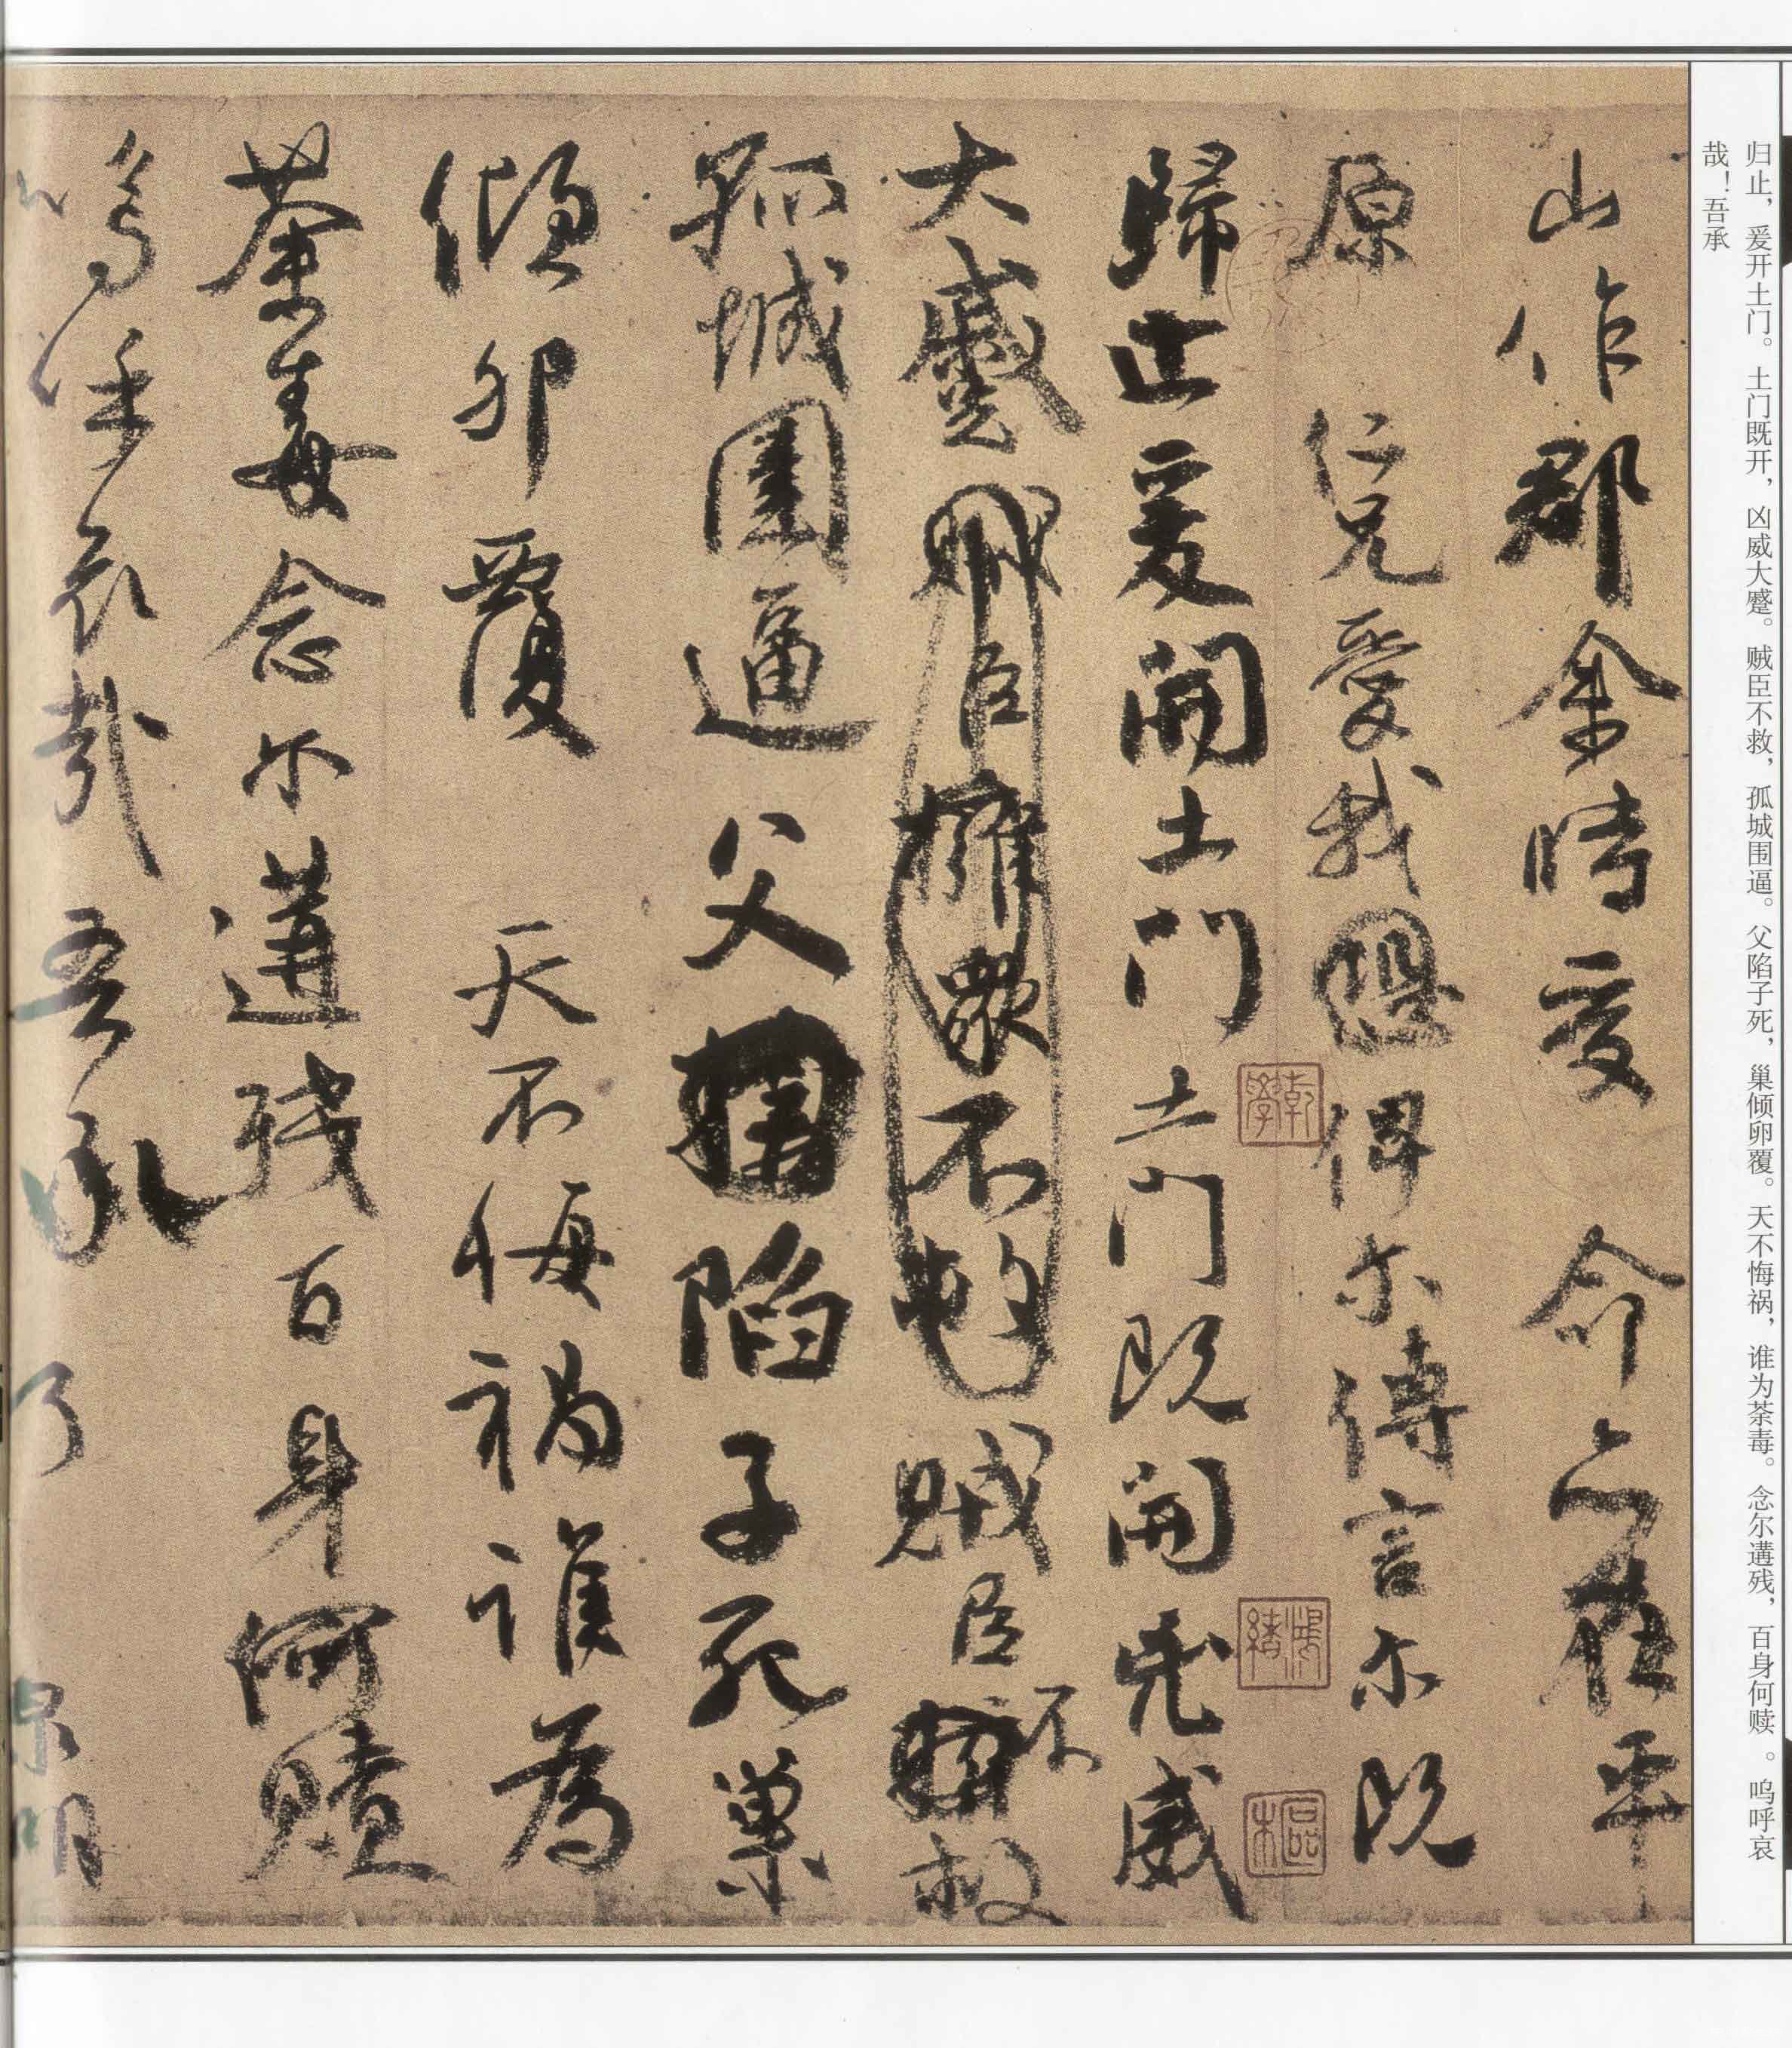 归止，爰开土门。土门既开，凶威大蹙。贼臣不救，孤城围逼。父陷子死，巢倾卵覆。天不悔祸，谁为荼毒。念尔遘残，百身何赎。呜呼哀
哉！吾承
山作郡余時受 命亦在平
原 仁兄愛我俾尔傳言尔既
歸止爰開土門土門既開凶威
大蹙賊臣擁衆不救賊臣不救
孤城圍逼父陷子死巢
傾卵覆 天不悔禍誰為
荼毒念尔遘殘百身何贖
嗚乎哀哉吾承
乾學
鴻緒